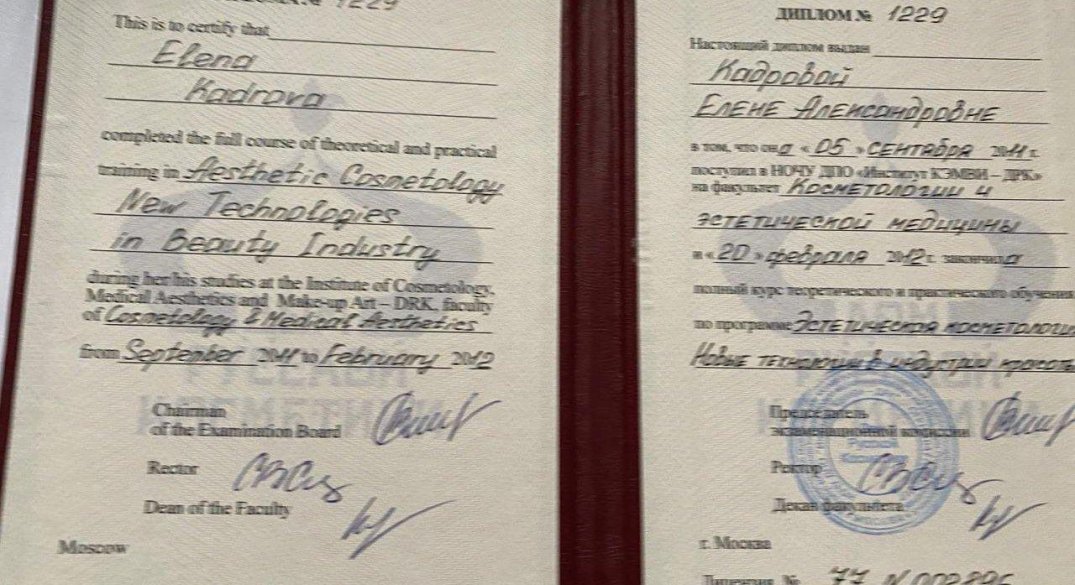 № 1229
This is to certify that
Elena
Kadrova
completed the full course of theoretical and practical
training in Aesthetic Cosmetology
New Technologies
in Beauty Industry
during her/his studies at the Institute of Cosmetology,
Medical Aesthetics and Make-up Art – DRK, faculty
of Cosmetology & Medical Aesthetics
from September 2011 to February 2012
Chairman
of the Examination Board
Rector
Dean of the Faculty
Moscow
ДИПЛОМ № 1229
Настоящий диплом выдан
Кадровой
Елене Александровне
в том, что она « 05 » сентября 2011 г.
поступил в НОЧУ ДПО «Институт КЭМВИ – ДРК»
на факультет Косметологии и
эстетической медицины
и « 20 » февраля 2012 г. закончила
полный курс теоретического и практического обучения
по программе Эстетическая косметология
Новые технологии в индустрии красоты
Председатель
экзаменационной комиссии
Ректор
Декан факультета
г. Москва
Лицензия № 77 №